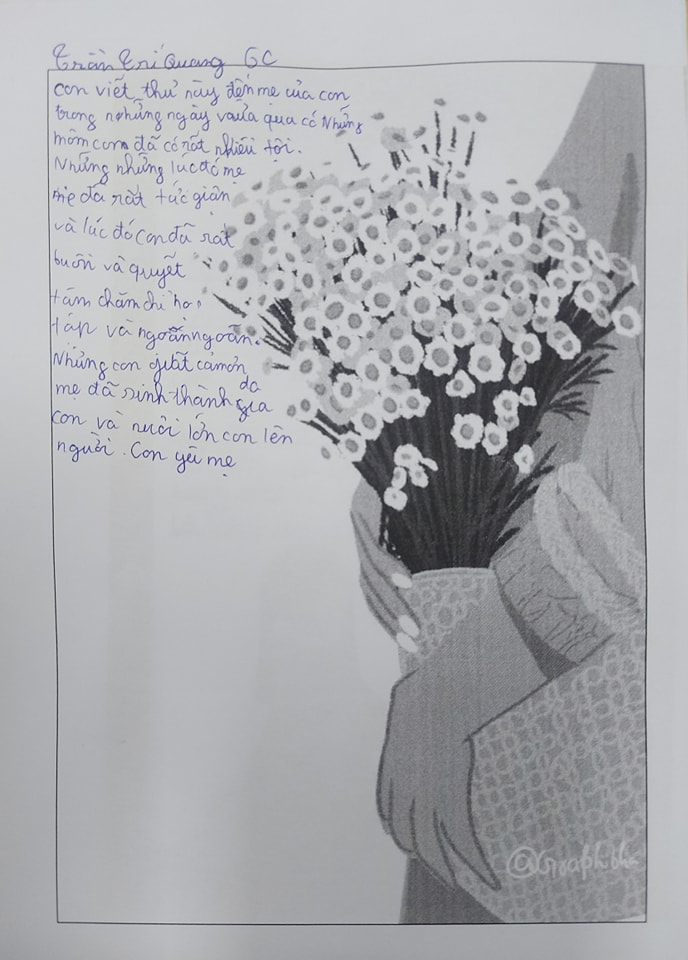 Trần Trí Quang 6C
con viết thư này đến mẹ của con
trong những ngày vừa qua có Những
môm con đã có rất nhiều tội.
Những những lúc đó mẹ
mẹ đã rất tức giận
và lúc đó con đã rất
buồn và quyết
tâm chăm chỉ học
tập và ngoãn ngoãn.
Những con rất cảm ơn
mẹ đã sinh thành ra
con và nuôi lớn con lên
người. Con yêu mẹ